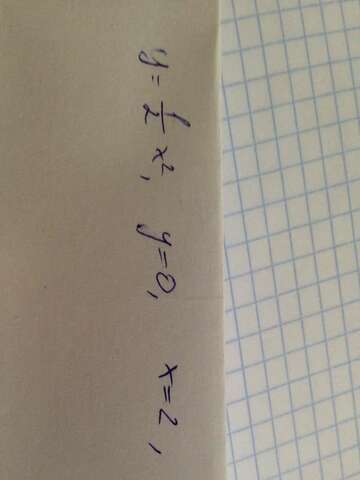 y = 1/2 x², y = 0, x = 2,